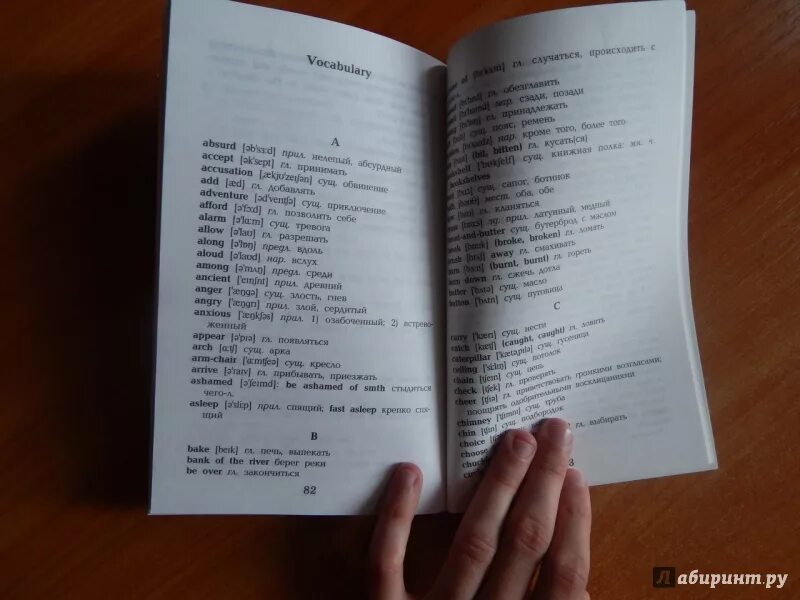 Vocabulary
A
absurd [əb'sɜ:d] прил. нелепый, абсурдный
accept [ək'sept] гл. принимать
accusation [ækjʊ'zeɪʃən] сущ. обвинение
add [æd] гл. добавлять
adventure [əd'ventʃə] сущ. приключение
afford [ə'fɔ:d] гл. позволить себе
alarm [ə'lɑ:m] сущ. тревога
allow [ə'laʊ] гл. разрешать
along [ə'lɒŋ] предл. вдоль
aloud [ə'laʊd] нар. вслух
among [ə'mʌŋ] предл. среди
ancient ['eɪnʃnt] прил. древний
anger ['æŋgə] сущ. злость, гнев
angry ['æŋgrɪ] прил. злой, сердитый
anxious ['æŋkʃəs] прил. 1) озабоченный; 2) встрево-
женный
appear [ə'pɪə] гл. появляться
arch [ɑ:tʃ] сущ. арка
arm-chair ['ɑ:mtʃeə] сущ. кресло
arrive [ə'raɪv] гл. прибывать, приезжать
ashamed [ə'ʃeɪmd]: be ashamed of smth стыдиться
чего-л.
asleep [ə'sli:p] прил. спящий; fast asleep крепко спя-
щий
B
bake [beɪk] гл. печь, выпекать
bank of the river берег реки
be over гл. закончиться
82
гл. случаться, происходить с
гл. обезглавить
нар. сзади, позади
гл. принадлежать
сущ. пояс, ремень
нар. кроме того, более того
(bit, bitten) гл. кусать(ся)
сущ. книжная полка: мн. ч.
сущ. сапог, ботинок
мест. оба, обе
гл. кланяться
прил. латунный, медный
сущ. бутерброд с маслом
(broke, broken) гл. ломать
away гл. смахивать
(burnt, burnt) гл. гореть
down гл. сжечь дотла
сущ. масло
['bʌtn] сущ. пуговица
C
carry ['kærɪ] сущ. нести
catch [kætʃ] (caught, caught) гл. ловить
caterpillar ['kætəpɪlə] сущ. гусеница
ceiling ['si:lɪŋ] сущ. потолок
chain [tʃeɪn] сущ. цепь
check [tʃek] гл. проверять
cheer [tʃɪə] гл. приветствовать громкими возгласами;
поощрять одобрительными восклицаниями
chimney ['tʃɪmnɪ] сущ. труба
chin [tʃɪn] сущ. подбородок
choice
choose гл. выбирать
3
Лабиринт.ру